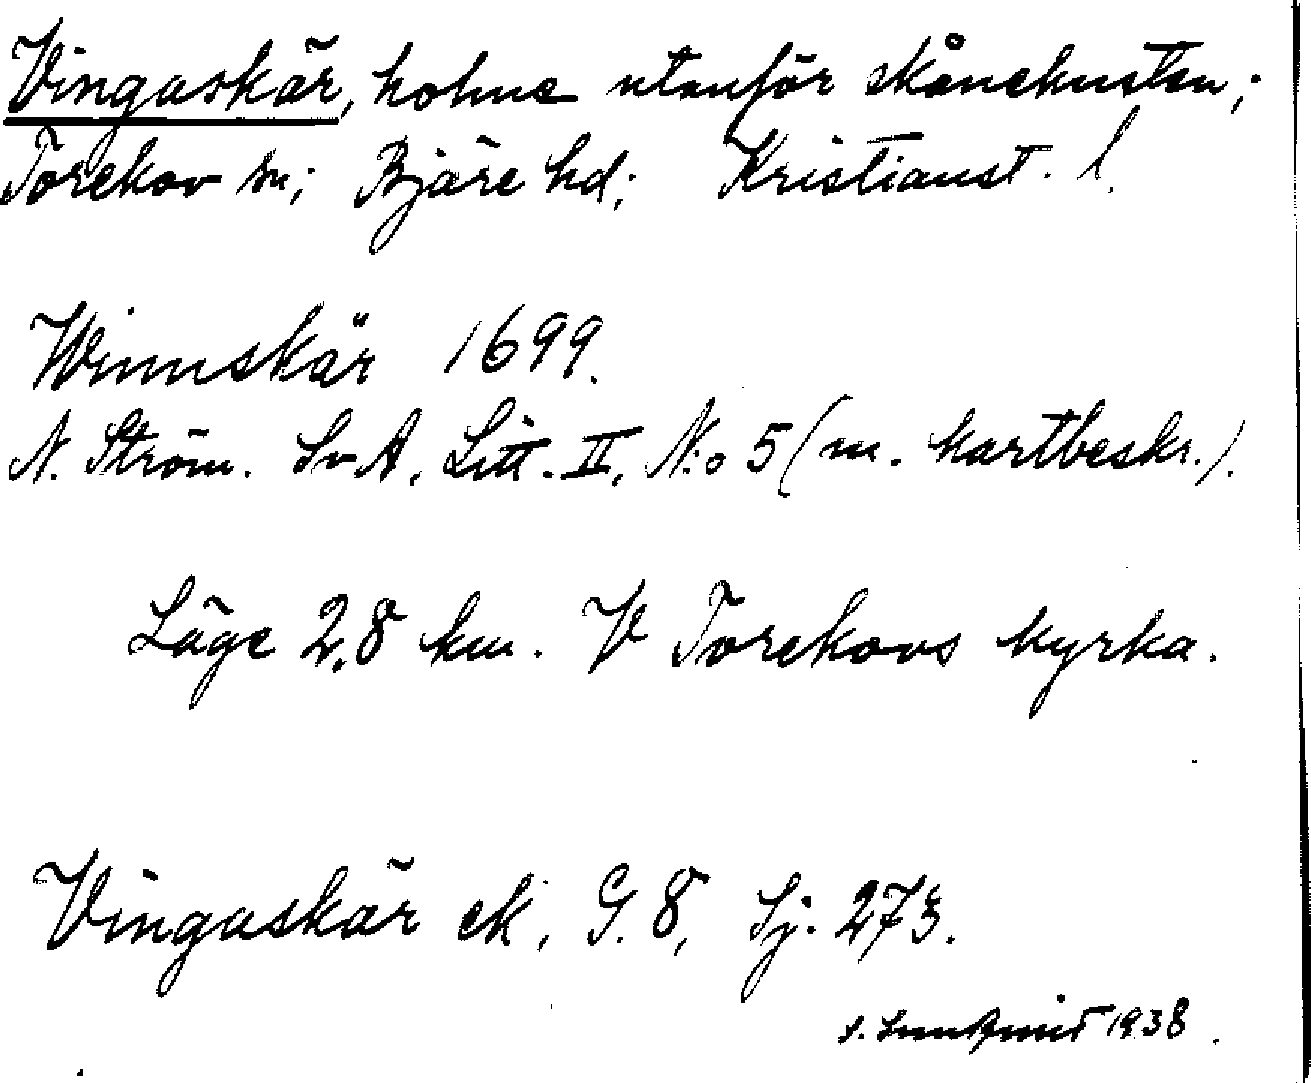 Vingaskär, holme utanför skånekusten;
Torekov sn; Bjäre hd; Kristianst. l.
Winnskär 1699.
N. Ström. SvA, Litt. II, N:o 5 (m. kartbeskr.).
Läge 2,8 km. V Torekovs kyrka.
Vingaskär ek, G. 8, Sj. 273.
1938.